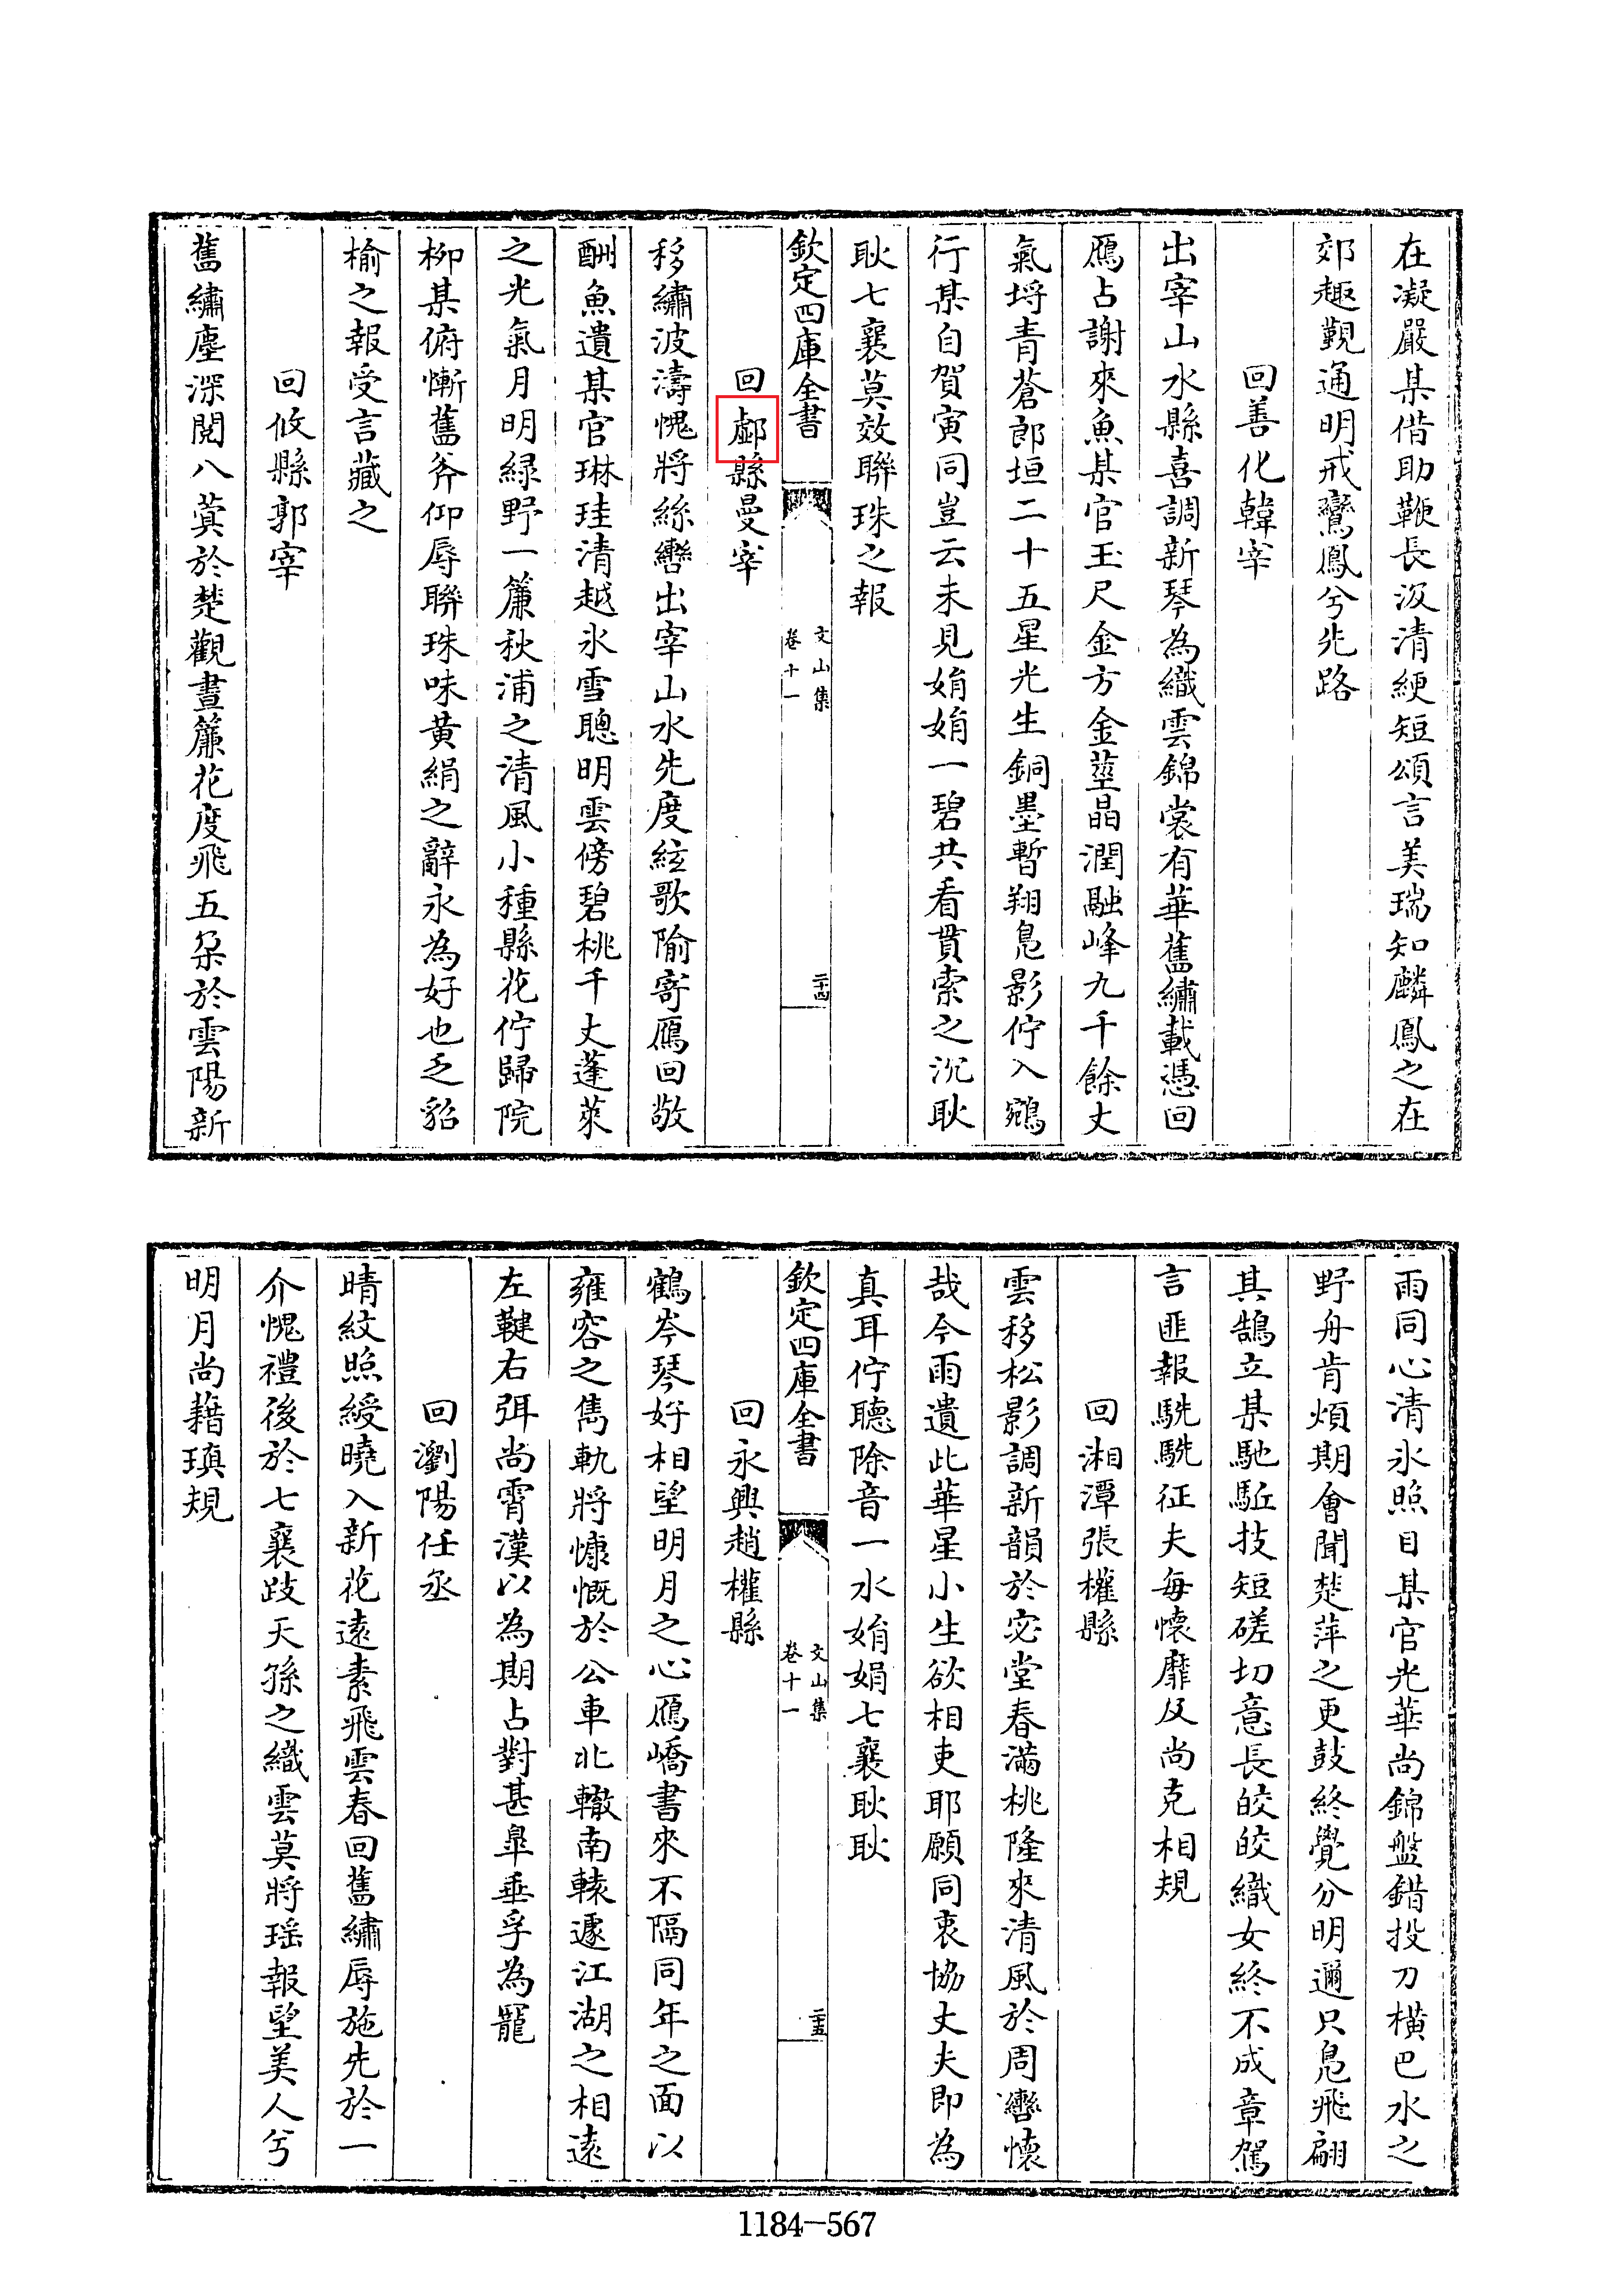 在凝嚴某借助鞭長汲清綆短頌言美瑞知麟鳳之在
郊趣覲通明戒鸞鳳兮先路
回善化韓宰
出宰山水縣喜調新琴為織雲錦裳有華舊繡載憑回
鴈占謝來魚某官玉尺金方金莖晶潤融峰九千餘丈
氣埒青蒼郎垣二十五星光生銅墨暫翔鳬影佇入鵷
行某自賀寅同豈云未見娟娟一碧共看貫索之沉耿
耿七襄莫效聯珠之報
欽定四庫全書
文山集
卷十一
二十四
回縣曼宰
移繡波濤愧將絲轡出宰山水先度絃歌隃寄鴈回敬
酬魚遺某官琳珪清越氷雪聰明雲傍碧桃千丈蓬萊
之光氣月明緑野一簾秋浦之清風小種縣花佇歸院
柳某俯慚舊斧仰辱聯珠味黄絹之辭永為好也乏貂
榆之報受言藏之
回攸縣郭宰
舊繡塵深閱八蓂於楚觀晝簾花度飛五朶於雲陽新
雨同心清氷照目某官光華尚錦盤錯投刀橫巴水之
野舟肯煩期會聞楚萍之更鼓終覺分明邇只鳬飛翩
其鵠立某馳駈技短磋切意長皎皎織女終不成章駕
言匪報駪駪征夫每懷靡及尚克相規
回湘潭張權縣
雲移松影調新韻於宓堂春滿桃隆來清風於周轡懷
哉今雨遺此華星小生欲相吏耶願同衷協丈夫即為
真耳佇聽除音一水娟娟七襄耿耿
欽定四庫全書
文山集
卷十一
二十五
回永興趙權縣
鶴岑琴好相望明月之心鴈嶠書來不隔同年之面以
雍容之雋軌將慷慨於公車北轍南轅遽江湖之相遠
左鞬右弭尚霄漢以為期占對甚辠垂孚為寵
回瀏陽任丞
晴紋照綬曉入新花遠素飛雲春回舊繡辱施先於一
介愧禮後於七襄跂天孫之織雲莫將瑶報望美人兮
明月尚藉瑱規
1184-567